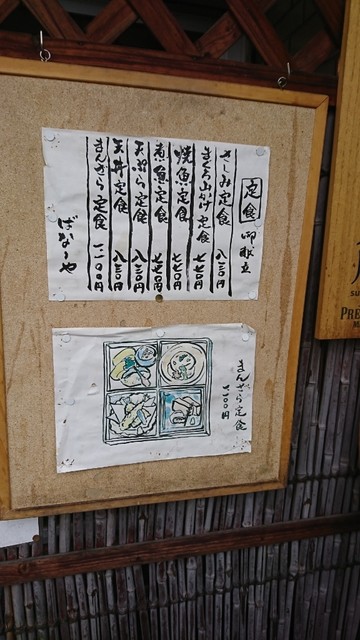 定食 御献立
さしみ定食 八三〇円
まぐろ山かけ定食 七七〇円
焼魚定食 七七〇円
煮魚定食 七七〇円
天ぷら定食 八三〇円
天丼定食 八三〇円
まんざら定食 一二〇〇円
ばな
や
まんざら定食
一二〇〇円
PRE